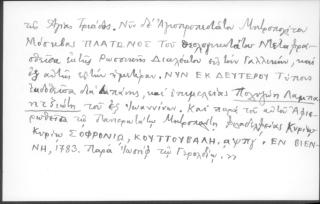 τῆς Ἁγίας Τριάδος. Νῦν δὲ Ἀγιοπρεπεστάτου Μητροπολίτου
Μόσκβας ΠΛΑΤΩΝΟΣ Τοῦ Θεολογικωτάτου Μεταφρα-
σθεῖσα ἐκ τῆς Ρωσσικῆς Διαλέκτου εἰς τὴν Γαλλικὴν, καὶ
ἐξ αὐτῆς εἰς τὴν ἡμετέραν. ΝΥΝ ΕΚ ΔΕΥΤΕΡΟΥ Τύποις
ἐκδοθεῖσα διὰ δαπάνης, καὶ ἐπιμελείας Πολυζώη Λαμπα-
νιτζιώτη τοῦ ἐξ Ἰωαννίνων. Καὶ παρὰ τοῦ αὐτοῦ Ἀφιε-
ρωθεῖσα τῷ Πανιερωτάτῳ Μητροπολίτῃ Φιλαδελφείας Κυρίῳ
Κυρίῳ ΣΟΦΡΟΝΙΩ, ΚΟΥΤΤΟΥΒΑΛΗ. ͵αψπγʹ. ΕΝ ΒΙΕΝ-
ΝΗ, 1783. Παρὰ Ἰωσὴφ τῷ Γερολδίῳ. »